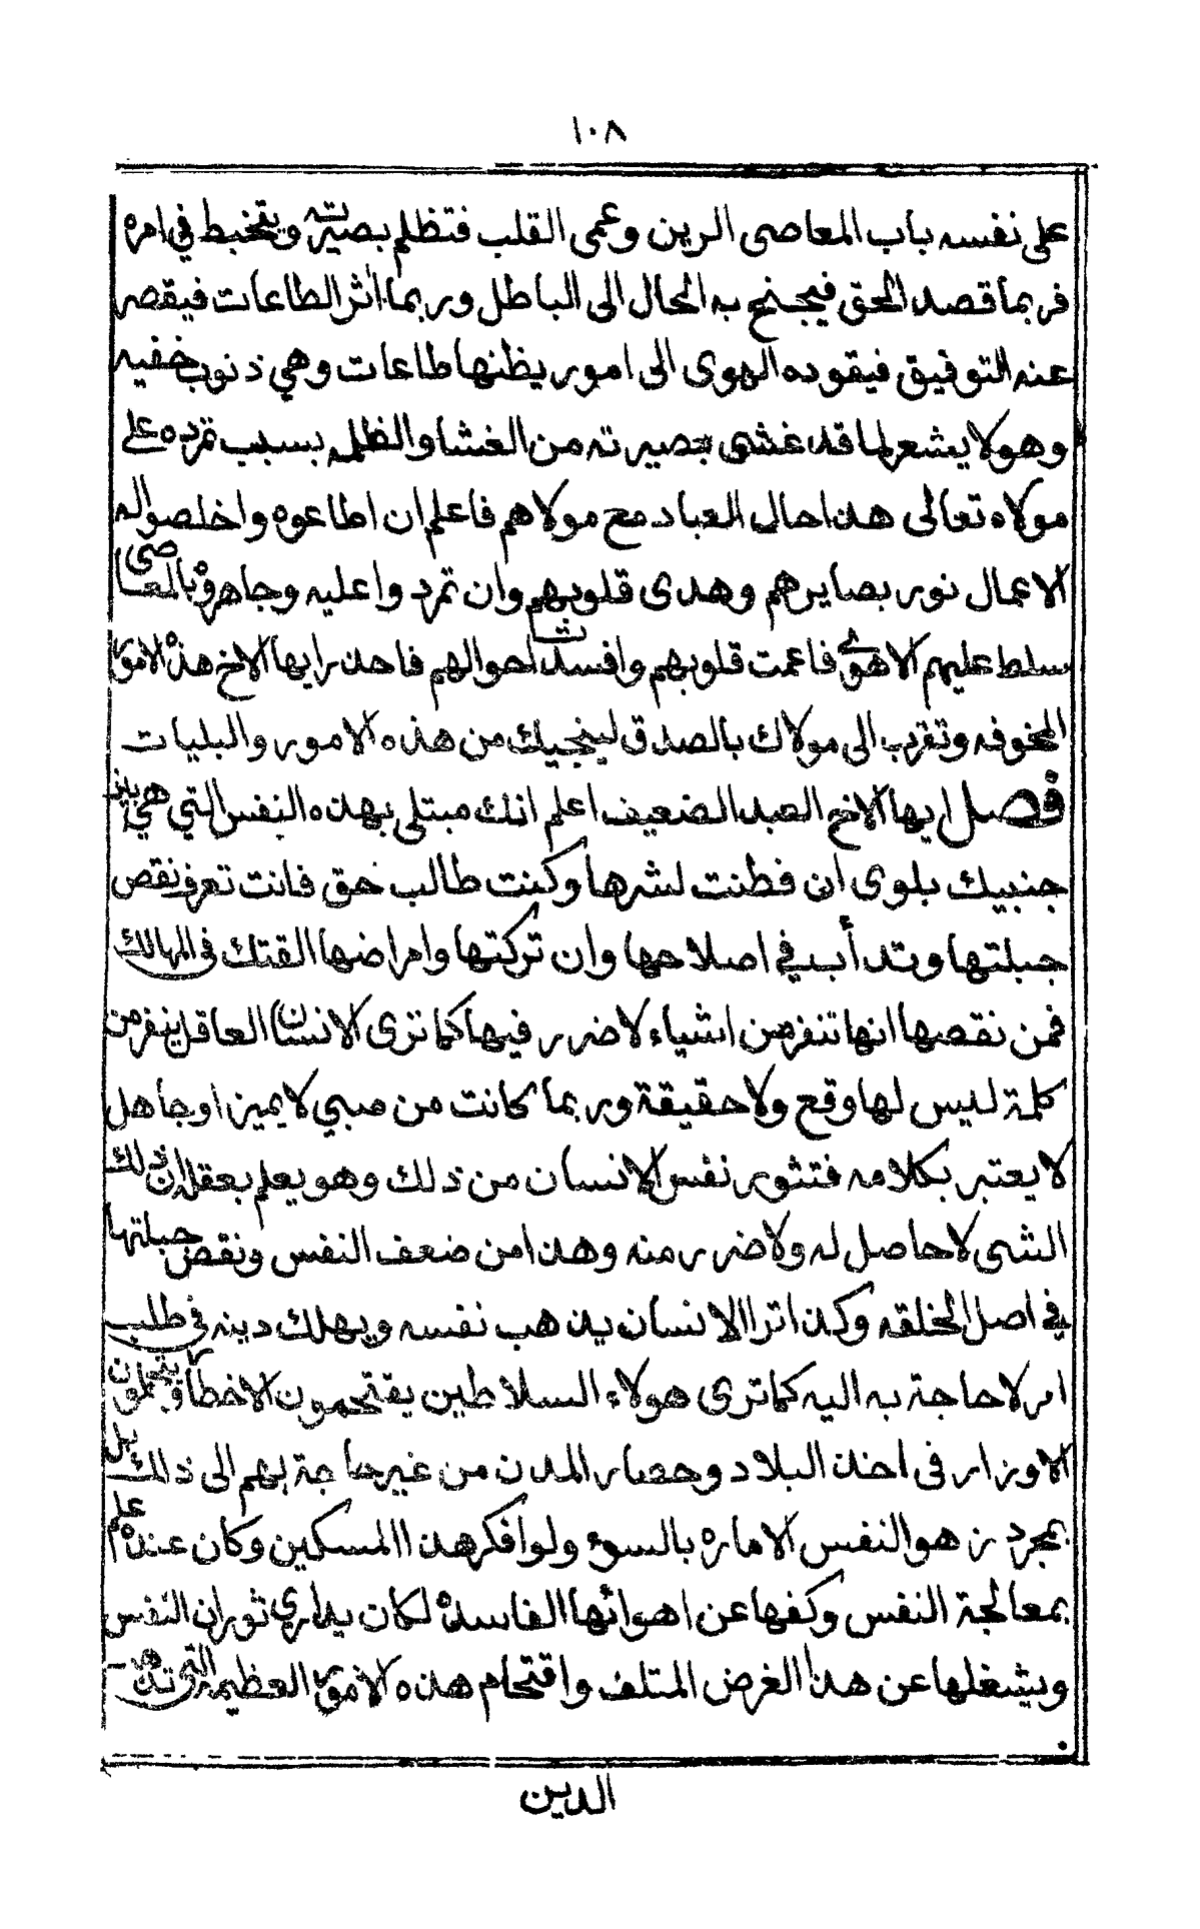 ١٠٨
على نفسه باب المعاصى الرين وعمى القلب فتظلم بصيرته ويتخبط في امره
فربما قصد الحق فيجنح به الحال الى الباطل وربما اثر الطاعات فيقصر
عنه التوفيق فيقوده الهوى الى امور يظنها طاعات وهي ذنوب خفيه
وهو لا يشعر لما قد غشى بصيرته من الغشا والظلمه بسبب تمرده على
مولاه تعالى هذا حال العباد مع مولاهم فاعلم ان اطاعوه واخلصوا له
الاعمال نور بصايرهم وهدى قلوبهم وان تمردوا عليه وجاهروه بالمعاصى
سلط عليهم الاهوى فاعمت قلوبهم وافسدت احوالهم فاحذر ايها الاخ هذه الامور
المخوفه وتقرب الى مولاك بالصدق لينجيك من هذه الامور والبليات
فصل ايها الاخ العبد الضعيف اعلم انك مبتلى بهذه النفس التي هي بين
جنبيك بلوى ان فطنت لشرها وكنت طالب حق فانت تعرف نقص
جبلتها وتدأب في اصلاحها وان تركتها وامراضها القتك فى المهالك
فمن نقصها انها تنفر من اشياء لا ضرر فيها كما ترى الانسان العاقل ينفر من
كلمة ليس لها وقع ولا حقيقة وربما كانت من صبي لا يميز او جاهل
لا يعتبر بكلامه فتثور نفس الانسان من ذلك وهو يعلم بعقله ان ذلك
الشى لا حاصل له ولا ضرر منه وهذا من ضعف النفس ونقص جبلتها
في اصل الخلقه وكذا ترا الانسان يذهب نفسه ويهلك دينه فى طلب
امر لا حاجة به اليه كما ترى هولاء السلاطين يقتحمون الاخطار ويتحملون
الاوزار فى اخذ البلاد وحصار المدن من غير حاجة بهم الى ذلك بل
بمجرد هوا النفس الاماره بالسوء ولو افكر هذا المسكين وكان عنده علم
بمعالجة النفس وكفها عن اهوائها الفاسدة لكان يداري ثوران النفس
ويشغلها عن هذا الغرض المتلف واقتحام هذه الامور العظيمة التى تذهب
الدين